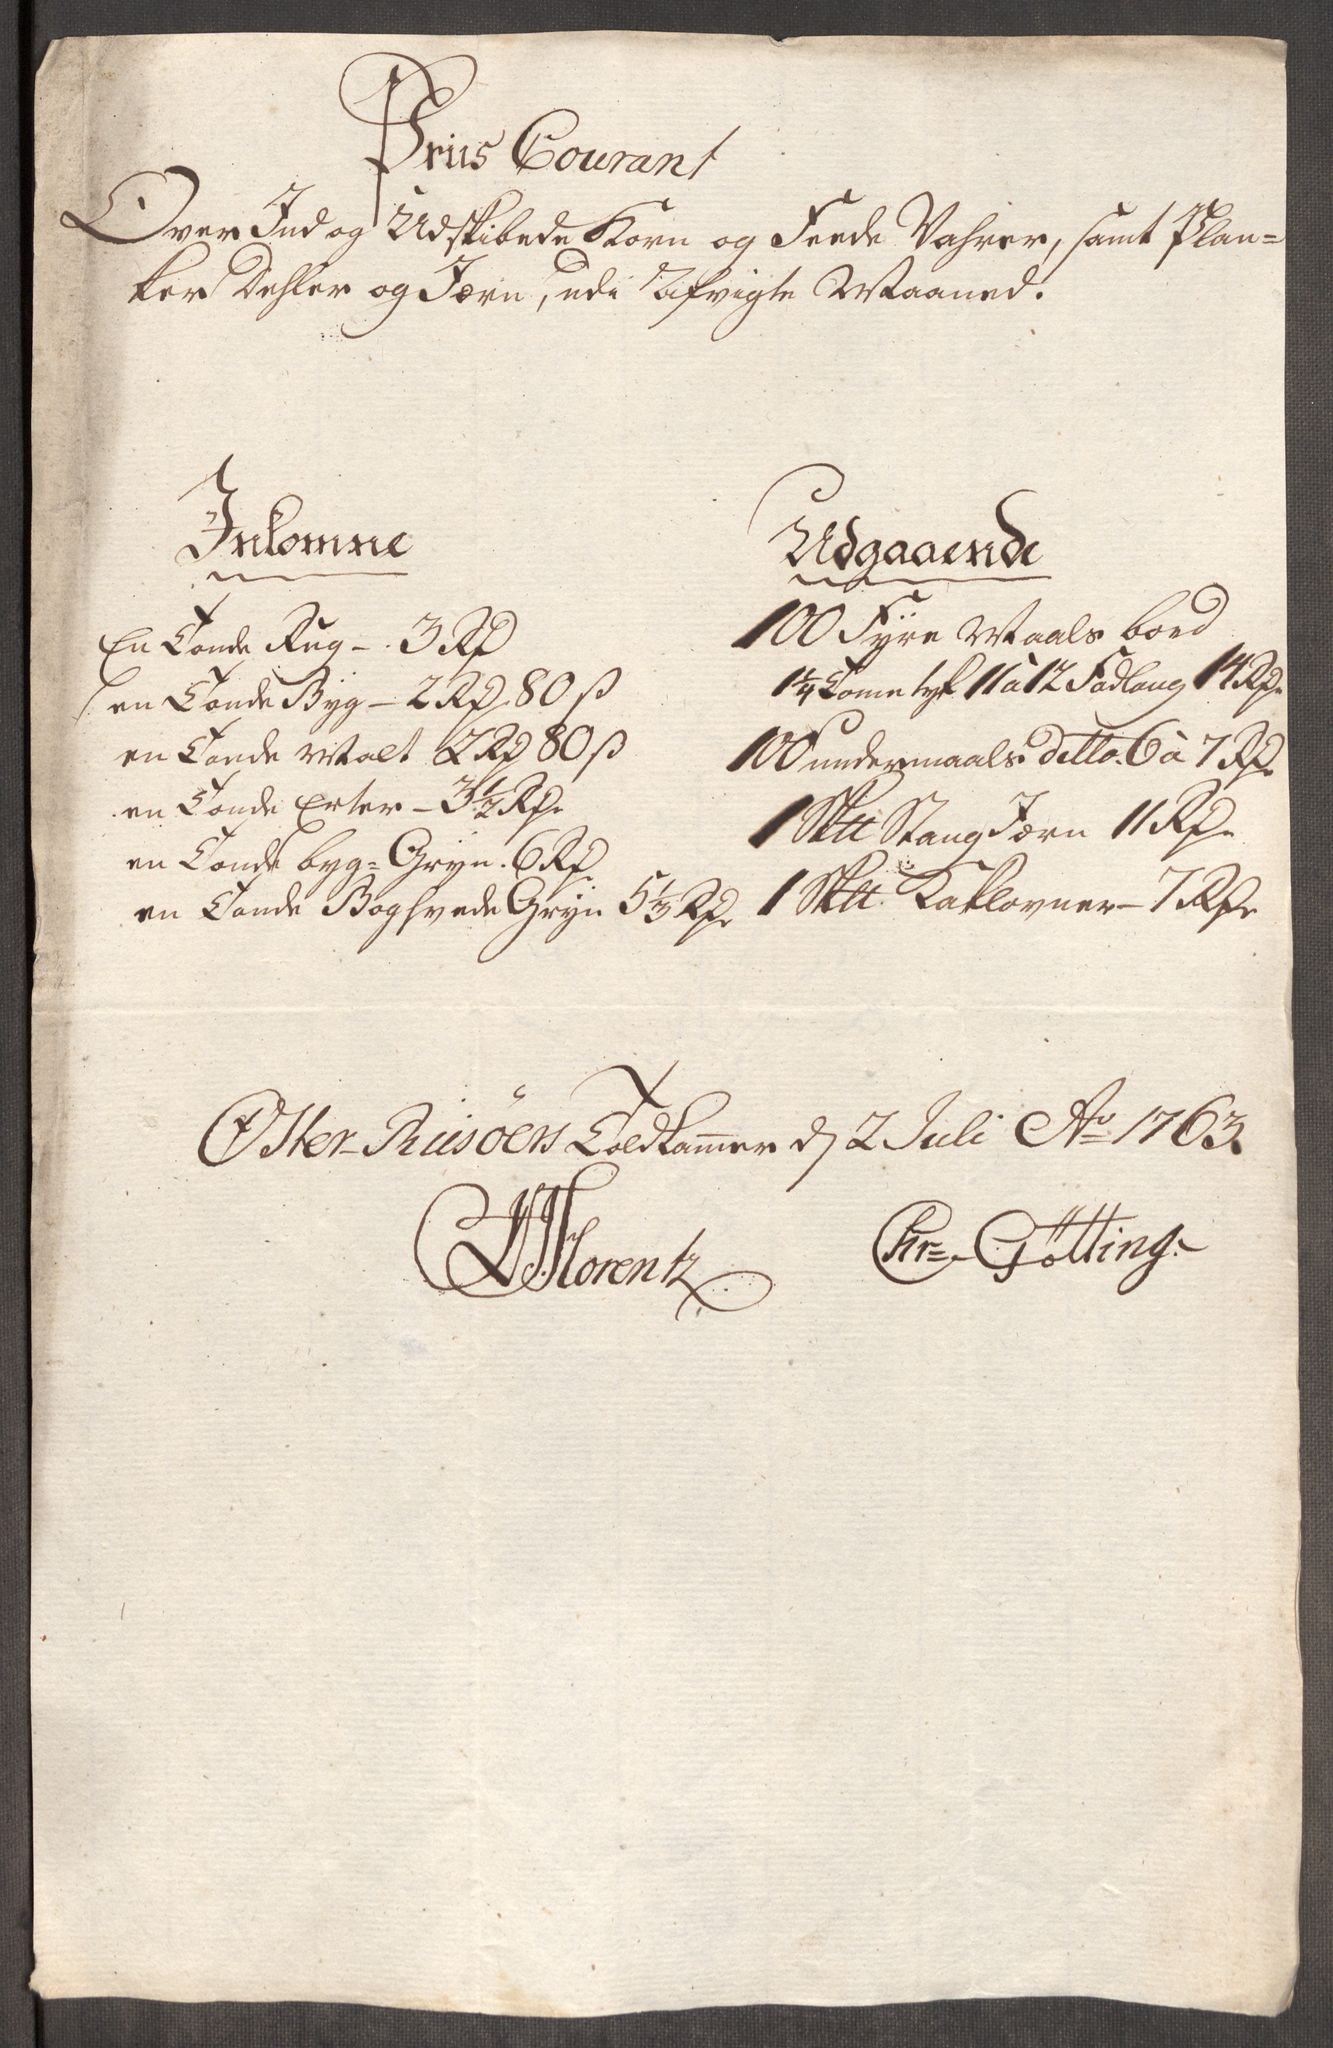 Priis Courant
Over Ind og Udskibede Korn og Feede Vahrer, samt Plan=
ker Dehler og Jærn, udi Afvigte Maaned.
Inkomne
En Tønde Rug - 3 Rd
en Tønde Byg - 2 Rd 80 ß
en Tønde Malt 2 Rd 80 ß
en Tønde Erter - 3 1/2 Rd
en Tønde byg= Gryn. 6 Rd
en Tønde Boghvede Gryn 5 1/3 Rd
Udgaaende
100 Fyre Maals bord
1 1/4 Tome tyk 11 à 12 Fod lang 14 Rd
100 undermaals ditto. 6 à 7 Rd
1 Sktt Stang Jærn 11 Rd
1 Sktt. Kaklovner - 7 Rd
Öster-Riisöers Toldkammer d 2 Juli Ao 1763.
Florentz
Chr= Götting.